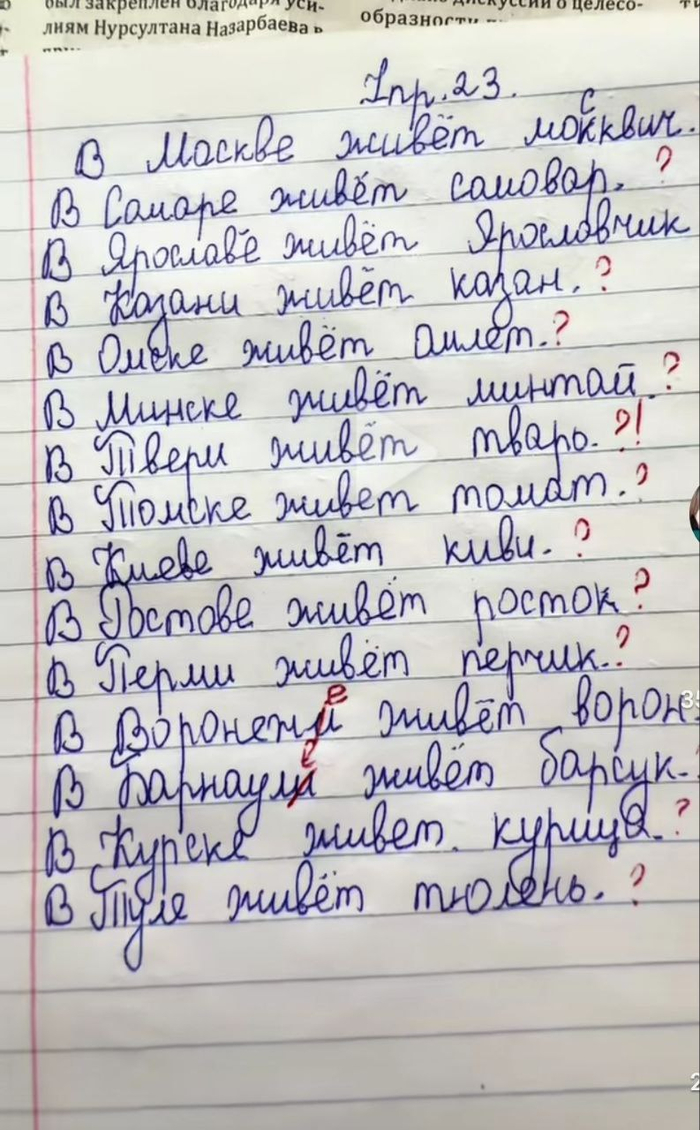 был закреплен благодаря уси-
лиям Нурсултана Назарбаева в
дискуссии о целесо-
образности
Упр. 23.
В Москве живёт москквич.
В Самаре живёт самовар. ?
В Ярославе живёт Ярославчик
В Казани живёт казан. ?
В Омске живёт омлет. ?
В Минске живёт минтай. ?
В Твери живёт тварь. ?!
В Томске живет томат. ?
В Киеве живёт киви. ?
В Ростове живёт росток ?
В Перми живёт перчик. ?
е
В Воронежи живёт ворон
е
В Барнаули живёт барсук.
В Курске живет. курица. ?
В Туле живёт тюлень. ?